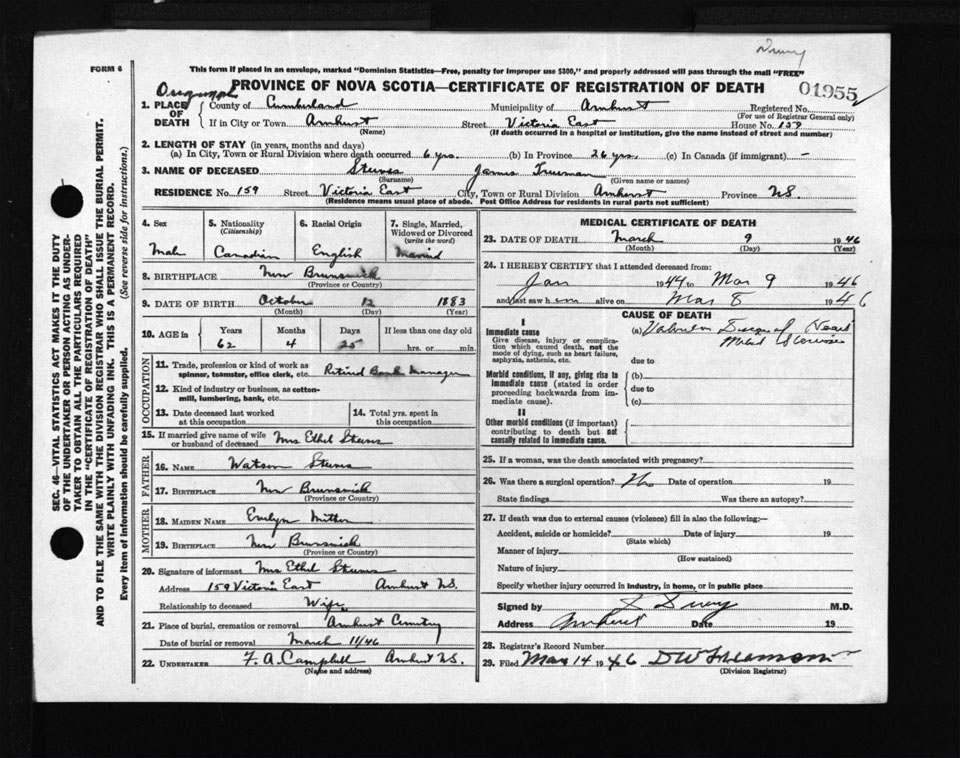 FORM 6
This form if placed in an envelope, marked "Dominion Statistics—Free, penalty for improper use $300," and properly addressed will pass through the mail "FREE"
PROVINCE OF NOVA SCOTIA—CERTIFICATE OF REGISTRATION OF DEATH
01955
1. PLACE OF DEATH
County of Cumberland Municipality of Amherst Registered No.
(For use of Registrar General only)
If in City or Town Amherst Street Victoria East House No. 159
(Name) (If death occurred in a hospital or institution, give the name instead of street and number)
2. LENGTH OF STAY (in years, months and days)
(a) In City, Town or Rural Division where death occurred 6 yrs. (b) In Province 26 yrs. (c) In Canada (if immigrant) —
3. NAME OF DECEASED Steeves James Trueman
(Surname) (Given name or names)
RESIDENCE No. 159 Street Victoria East City, Town or Rural Division Amherst Province N.S.
(Residence means usual place of abode. Post Office Address for residents in rural parts not sufficient)
4. Sex
Male
5. Nationality
(Citizenship)
Canadian
6. Racial Origin
English
7. Single, Married, Widowed or Divorced
(write the word)
Married
8. BIRTHPLACE New Brunswick
(Province or Country)
9. DATE OF BIRTH October 12 1883
(Month) (Day) (Year)
10. AGE in Years Months Days If less than one day old
62 4 25 hrs. or min.
OCCUPATION
11. Trade, profession or kind of work as spinner, teamster, office clerk, etc. Retired Bank Manager
12. Kind of industry or business, as cotton-mill, lumbering, bank, etc.
13. Date deceased last worked at this occupation
14. Total yrs. spent in this occupation
15. If married give name of wife or husband of deceased Mrs Ethel Steeves
FATHER
16. NAME Watson Steeves
17. BIRTHPLACE New Brunswick
(Province or Country)
MOTHER
18. MAIDEN NAME Evelyn
19. BIRTHPLACE New Brunswick
(Province or Country)
20. Signature of informant Mrs Ethel Steeves
Address 159 Victoria East Amherst N.S.
Relationship to deceased Wife
21. Place of burial, cremation or removal Amherst Cemetery
Date of burial or removal March 11/46
22. UNDERTAKER F. A. Campbell Amherst N.S.
(Name and address)
MEDICAL CERTIFICATE OF DEATH
23. DATE OF DEATH March 9 1946
(Month) (Day)
24. I HEREBY CERTIFY that I attended deceased from
Jan 1944 to Mar 9 1946
and last saw him alive on Mar 8 1946
CAUSE OF DEATH
I
Immediate cause
Give disease, injury or complication which caused death, not the mode of dying, such as heart failure, asphyxia, asthenia, etc.
(a) Valvular Disease of Heart
Mitral Stenosis
due to
Morbid conditions, if any, giving rise to immediate cause (stated in order proceeding backwards from immediate cause).
(b)
due to
(c)
II
Other morbid conditions (if important) contributing to death but not causally related to immediate cause.
25. If a woman, was the death associated with pregnancy?
26. Was there a surgical operation? No Date of operation 19
State findings Was there an autopsy?
27. If death was due to external causes (violence) fill in also the following:—
Accident, suicide or homicide? Date of injury 19
(State which)
Manner of injury
(How sustained)
Nature of injury
Specify whether injury occurred in industry, in home, or in public place
Signed by M.D.
Address Amherst Date 19
28. Registrar's Record Number
29. Filed Mar 14 1946
(Division Registrar)
SEC. 46—VITAL STATISTICS ACT MAKES IT THE DUTY
OF THE UNDERTAKER OR PERSON ACTING AS UNDER-
TAKER TO OBTAIN ALL THE PARTICULARS REQUIRED
IN THE "CERTIFICATE OF REGISTRATION OF DEATH"
AND TO FILE THE SAME WITH THE DIVISION REGISTRAR WHO SHALL ISSUE THE BURIAL PERMIT.
WRITE PLAINLY WITH UNFADING INK. THIS IS A PERMANENT RECORD.
Every item of information should be carefully supplied. (See reverse side for instructions.)